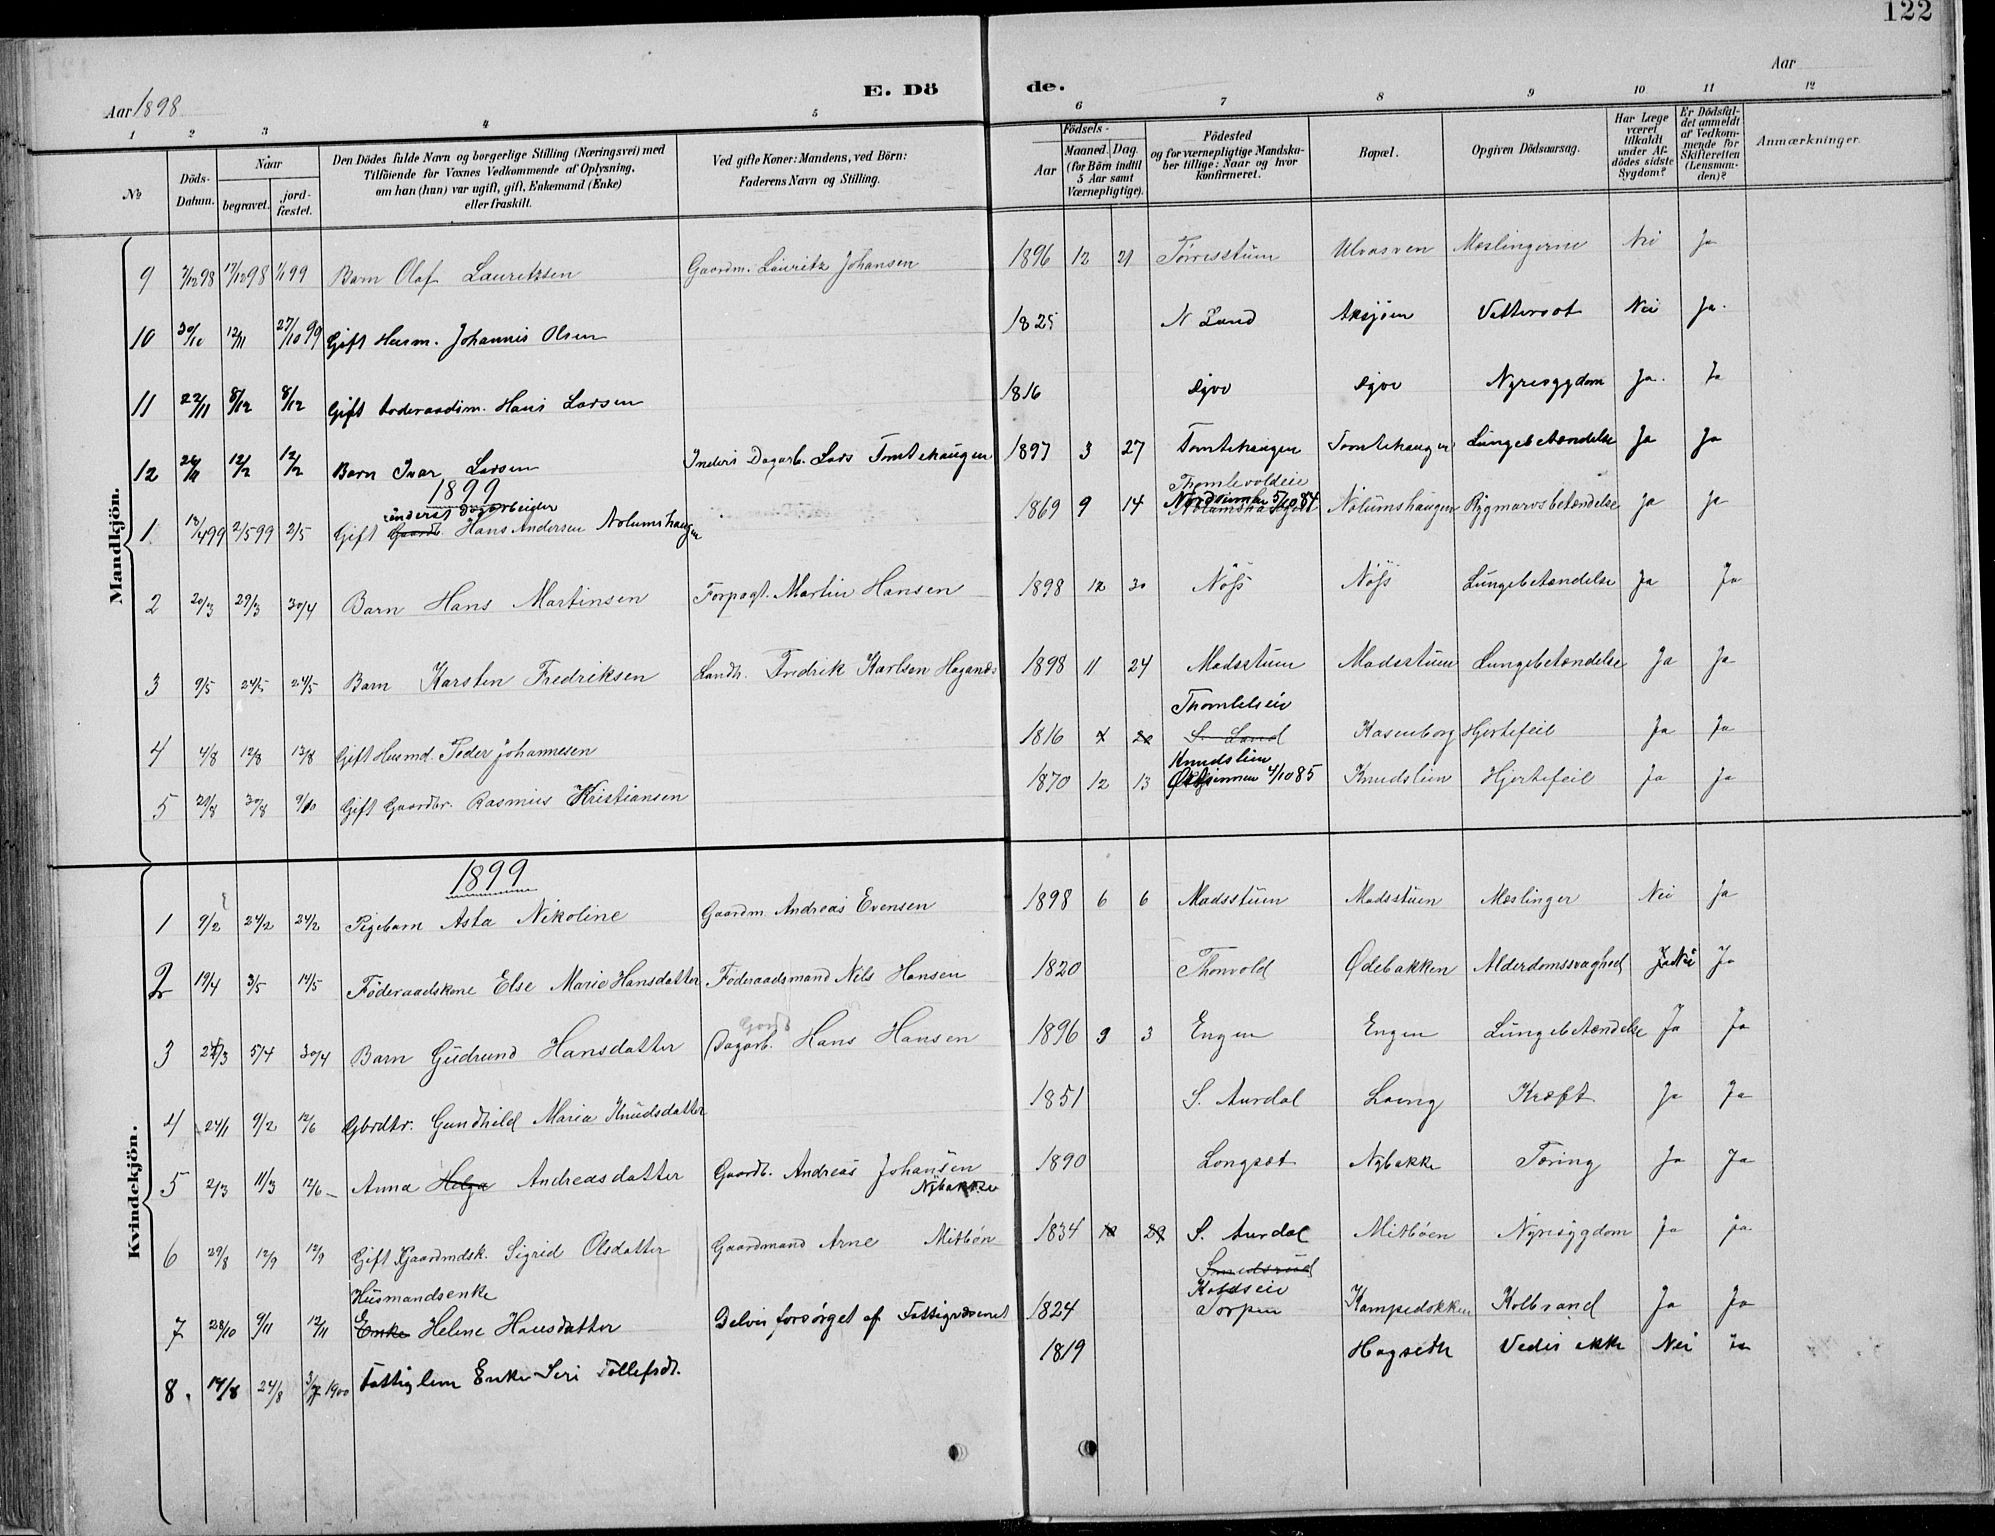 122
Aar 1898
E. Dö de.
Aar
1 2 3 4 5 6 7 8 9 10 11 12
№
Döds-Datum.
Naar
begravet.
jord-fæstet.
Den Dödes fulde Navn og borgerlige Stilling (Næringsvei) med
Tilföiende for Voxnes Vedkommende af Oplysning,
om han (hun) var ugift, gift, Enkemand (Enke)
eller fraskilt.
Ved gifte Koner: Mandens, ved Börn:
Faderens Navn og Stilling.
Födsels-
Aar
Maaned. Dag.
(for Börn indtil
5 Aar samt
Værnepligtige).
Födested
og for værnepligtige Mandska-
ber tillige: Naar og hvor
konfirmeret.
Bopæl.
Opgiven Dödsaarsag.
Har Læge
været
tilkaldt
under Af-
dödes sidste
Sygdom?
Er Dödsfal-
det anmeldt
af Vedkom-
mende for
Skifteretten
(Lensman-
den)?
Anmærkninger.
Mandkjön.
9 7/12 98 17/12 98 1/1 99 Barn Olaf Lauritzsen Gaardm. Lauritz Johansen 1896 12 21 Tørrisstuen Ulvasven Meslingerne Nei Ja
10 30/10 12/11 27/10 99 Gift Husm. Johannis Olsen 1825 N Land Aksjøen Vattersot Nei Ja.
11 22/11 8/12 8/12 Gift Foderaadsm. Hans Larsen 1816 Nyresygdom Ja. Ja
12 12/2 12/2 Barn Ivar Larsen Inders Dagarb. Lars Tomtehaugen 1897 3 27 Tomtehaugen Tomtehaugen Lungebetændelse Ja Ja
1899
inderst Dagarbeider
Thomlevoldeie
1 13/4 99 2/5 99 2/5 Gift Gaardb. Hans Andersen Nolumshaugen 1869 9 14 Nordsinnen 5/10 84 Nolumshaugen Rygmarvsbetændelse Ja Ja
2 20/3 29/3 30/4 Barn Hans Martinsen Forpagt. Martin Hansen 1898 12 30 Nøss Nøss Lungebetændelse Ja Ja
3 9/5 24/5 24/5 Barn Karsten Fredriksen Landh. Fredrik Karlsen Haganæs 1898 11 24 Madsstuen Madsstuen Lungebetændelse Ja Ja
Thomleleie
4 4/8 12/8 13/8 Gift Husmd. Peder Johannesen 1816 4 20 S. Land Kasenborg Hjertefeil Ja Ja
Knudslien
5 21/8 30/8 9/10 Gift Gaardbr. Rasmus Kristiansen 1870 12 13 Østsinnen 4/10 85 Knudslien Hjertefeil Ja Ja
Kvindekjön.
1899
1 9/2 24/2 24/2 Pigebarn Asta Nikoline Gaardm. Andreas Evensen 1898 6 6 Madsstuen Madsstuen Meslinger Nei Ja
2 19/4 3/5 14/5 Föderaadskone Else Marie Hansdatter Föderaadsmand Nils Hansen 1820 Thonvold Ødebakken Alderdomssvaghed Ja Nei Ja
Gardb
3 22/3 5/4 30/4 Barn Gudrund Hansdatter Dagarb. Hans Hansen 1896 3 3 Engen Engen Lungebetændelse Ja Ja
4 24/1 9/2 12/6 Gbrdtr. Gundhild Maria Knudsdatter 1851 S. Aurdal Loeng Kræft Ja Ja
5 2/3 11/3 12/6 Anna Helga Andreasdatter Gaardb. Andreas Johansen Nybakke 1890 Longset Nybakke Tæring Ja Ja
6 29/8 12/9 12/9 Gift Gaardmdsk. Sigrid Olsdatter Gaardmand Arne Mitbön 1834 12 29 S. Aurdal Mitböen Nyresygdom Ja Ja
Husmandsenke
Smedsrud
Koldseie
7 28/10 9/11 12/11 Enke Helene Hansdatter Delvis forsørget af Fattigvæsenet 1824 Torpen Kampedokken Kolbrand Ja Ja
8. 14/8 24/8 3/7 1900 Fattiglem Enke Siri Tollefsdt. 1819 Hagseth Vedes ikke Nei Ja